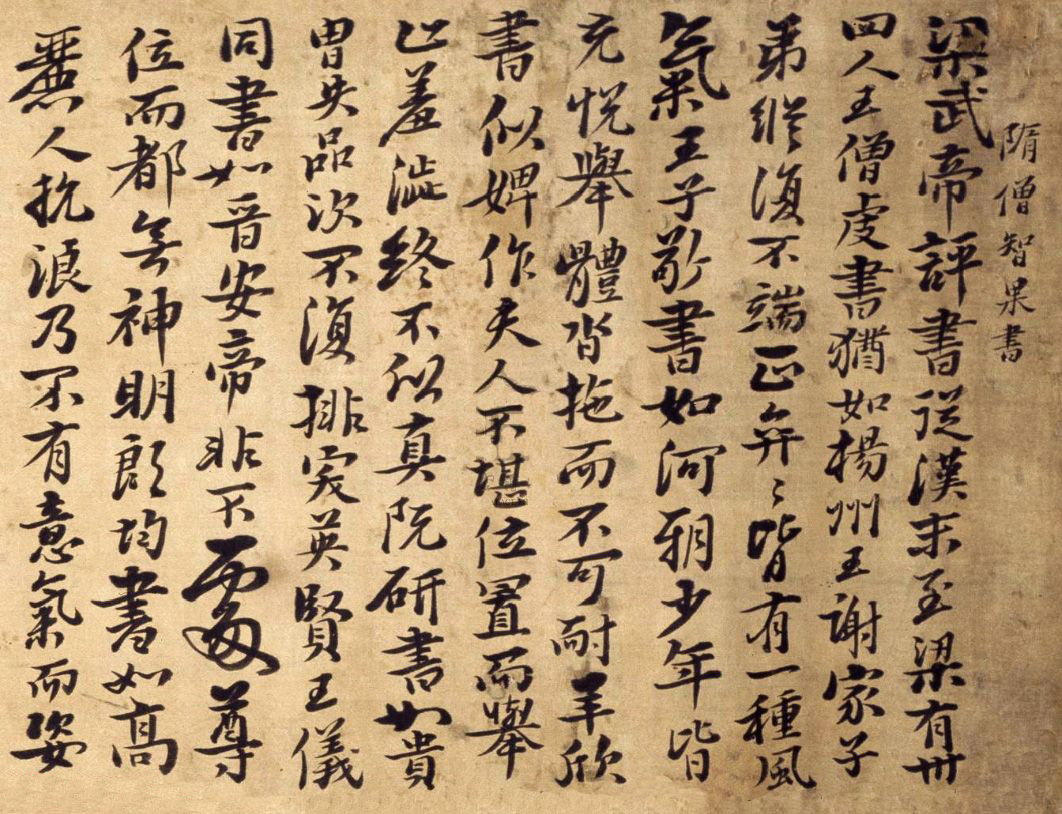 隋僧智果書
梁武帝評書從漢末至梁有卅
四人王僧虔書猶如楊州王謝家子
弟縱復不端正弈〻皆有一種風
氣王子敬書如河朔少年皆
充悅舉體沓拖而不可耐羊欣
書似婢作夫人不堪位置而舉
止羞澁終不似真阮研書如貴
胄失品次不復排突英賢王儀
同書如晉安帝非不處尊
位而都無神明殷均書如高
麗人抗浪乃不有意氣而姿